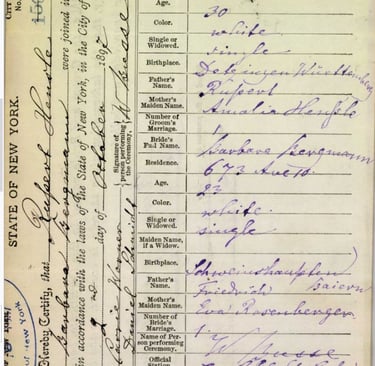 Age.
30
Color.
white
Single or
Widowed.
single
Birthplace.
Dotzingen Württemberg
Father's
Name.
Rupert
Mother's
Maiden Name.
Amalia Hensle
Number of
Groom's
Marriage.
1
Bride's
Full Name.
Barbara Bergmann
Residence.
673 Ave 10
Age.
23
Color.
white.
Single or
Widowed.
single
Maiden Name,
if a Widow.
Birthplace.
Schweinshaupten
Baiern
Father's
Name.
Friedrich
Mother's
Maiden Name.
Eva Rosenberger
Number of
Bride's
Marriage.
1.
Name of Per-
son performing
Ceremony.
W Busse
Official
Station.
STATE OF NEW YORK.
Hereby Certify, that Rupert Hensle
Barbara Bergmann were joined in
in accordance with the laws of the State of New York, in the City of
2nd day of October 1897
Signature of
person performing
the Ceremony,
W Busse
Daniel Schmidt
of New York
CITY
No.